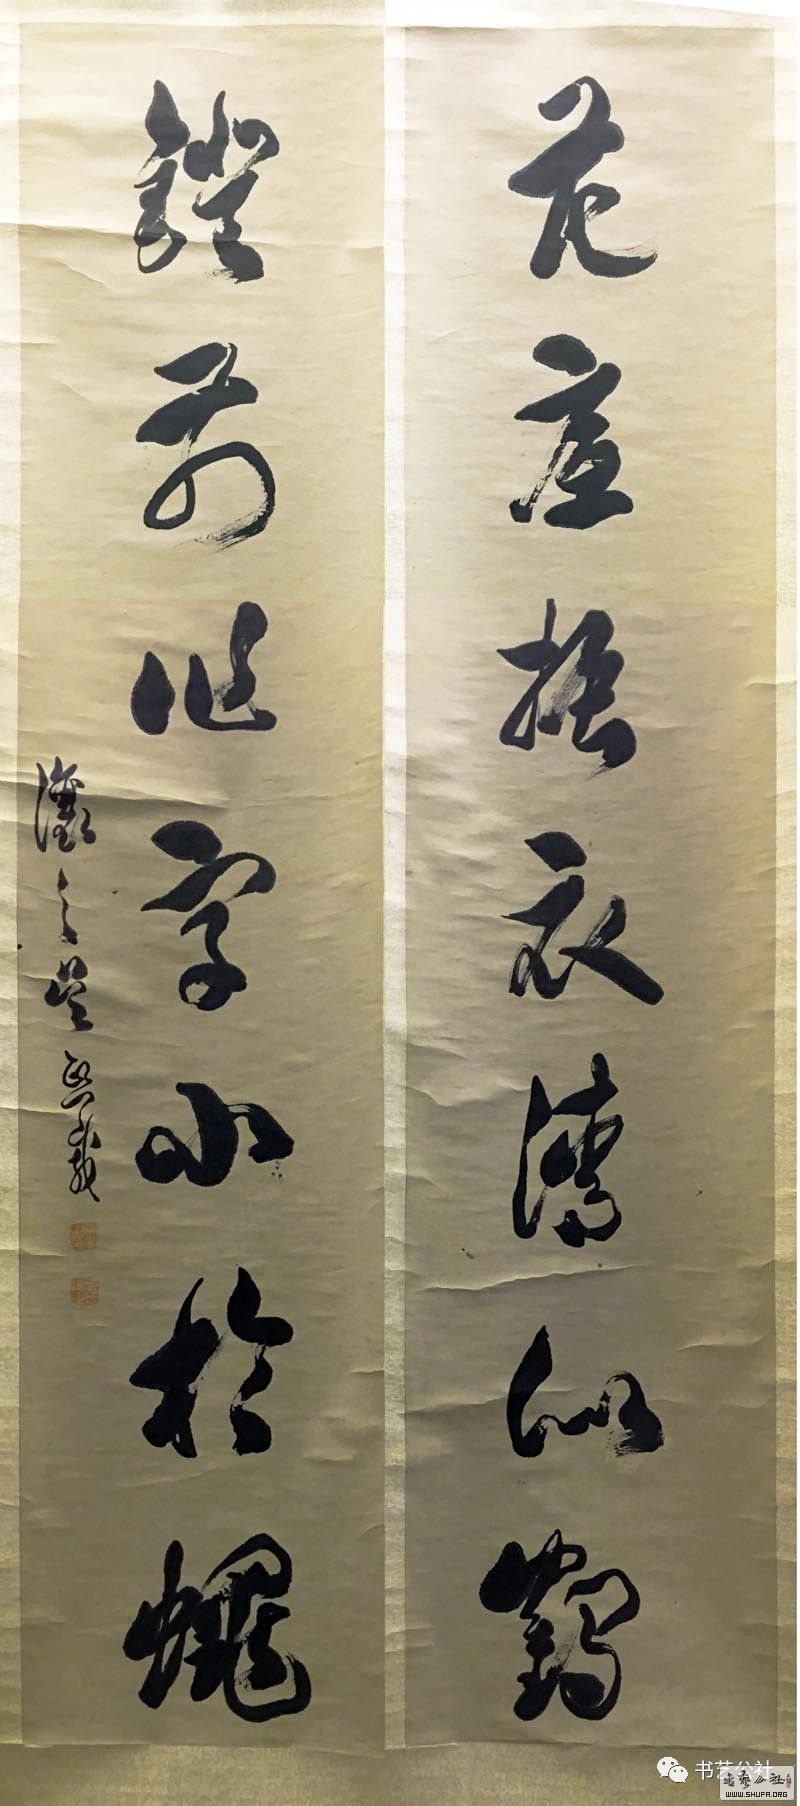 花振衣清似鶴
鐙前作字小於蠅
书艺公社
书艺公社
WWW.SHUFA.ORG